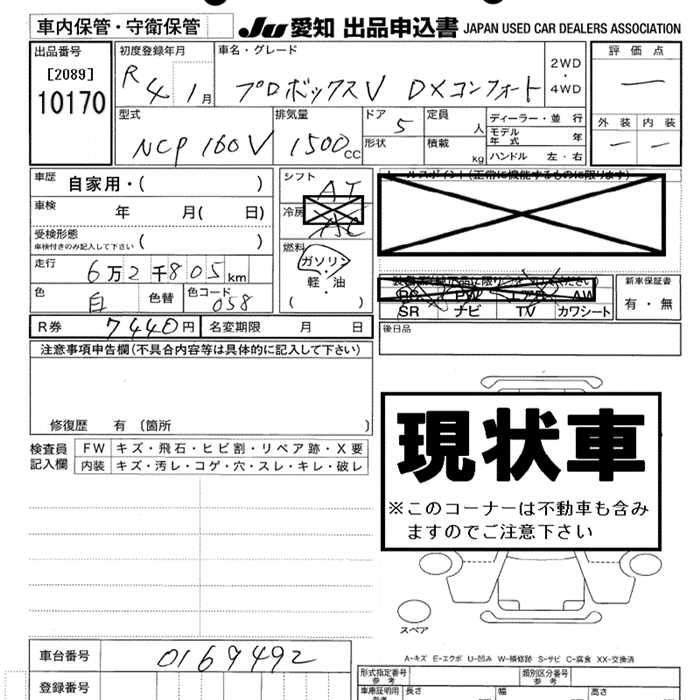 車内保管・守衛保管
JU 愛知 出品申込書 JAPAN USED CAR DEALERS ASSOCIATION
出品番号
[2089]
10170
初度登録年月
R 4 1月
車名・グレード
プロボックスV DXコンフォート
2WD
・
4WD
評価点
―
外装 内装
― ―
型式
NCP 160V
排気量
1500cc
ドア
5
形状
定員
人
積載
kg
ディーラー・並行
モデル年式 年
ハンドル 左・右
車歴 自家用・( )
車検 年 月( 日)
受検形態
車検付きのみ記入して下さい ( )
走行 6万2千805km
色 白 色替 色コード 058
シフト
AT
冷房
燃料
ガソリン
・
軽・油
( )
(正常に機能するものに限ります)
SR ナビ TV カワシート
新車保証書
有・無
後日品
R券 7440円 名変期限 月 日
注意事項申告欄(不具合内容等は具体的に記入して下さい)
修復歴 有 〔箇所 〕
検査員記入欄
FW キズ・飛石・ヒビ割・リペア跡・X要
内装 キズ・汚レ・コゲ・穴・スレ・キレ・破レ
現状車
※このコーナーは不動車も含み
ますのでご注意下さい
スペア
A-キズ E-エクボ U-凹み W-補修跡 S-サビ C-腐食 XX-交換済
車台番号 0169492
登録番号
型式指定番号
参考
類別区分番号
参考
車庫証明用
参考
長さ
幅
高さ